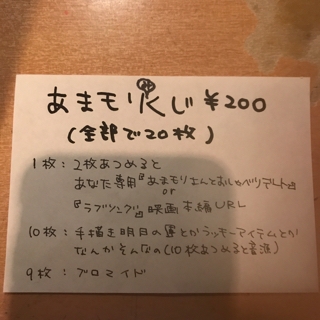 あまモリくじ ¥200
(全部で20枚)
1枚:2枚あつめると
あなた専用『あまモリさんとおしゃべりアート』
or
『ラブソング』映画本編URL
10枚:手描き明日の運とかラッキーアイテムとか
なんかそんなの(10枚あつめると)
9枚:ブロマイド